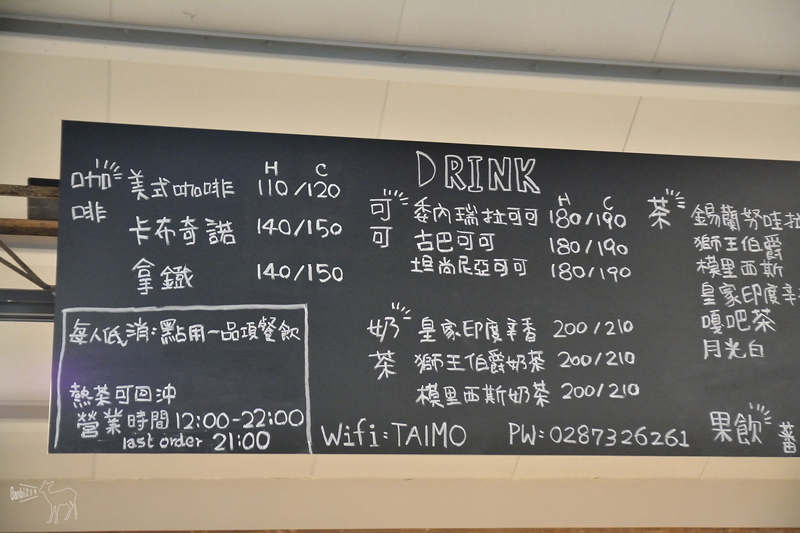 DRINK
咖啡
H C
美式咖啡 110/120
卡布奇諾 140/150
拿鐵 140/150
可可
H C
委內瑞拉可可 180/190
古巴可可 180/190
坦尚尼亞可可 180/190
奶茶
皇家印度辛香 200/210
獅王伯爵奶茶 200/210
模里西斯奶茶 200/210
茶
錫蘭努哇拉
獅王伯爵
模里西斯
皇家印度辛
嘎吧茶
月光白
果飲
每人低消:點用一品項餐飲
熱茶可回沖
營業時間12:00-22:00
last order 21:00
Wifi:TAIMO PW:0287326261